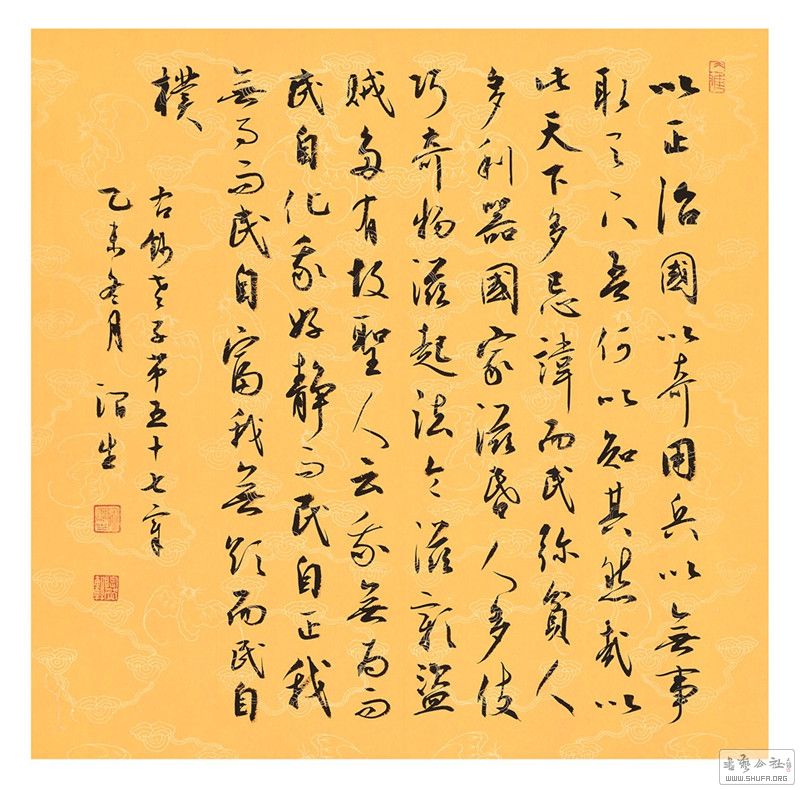 以正治國以奇用兵以無事
取天下吾何以知其然哉以
此天下多忌諱而民弥貧人
多利器國家滋昏人多伎
巧奇物滋起法令滋彰盜
賊多有故聖人云我無為而
民自化我好靜而民自正我
無事而民自富我無欲而民自
樸
右錄老子第五十七章
乙未冬月 生
書藝公社
WWW.SHUFA.ORG